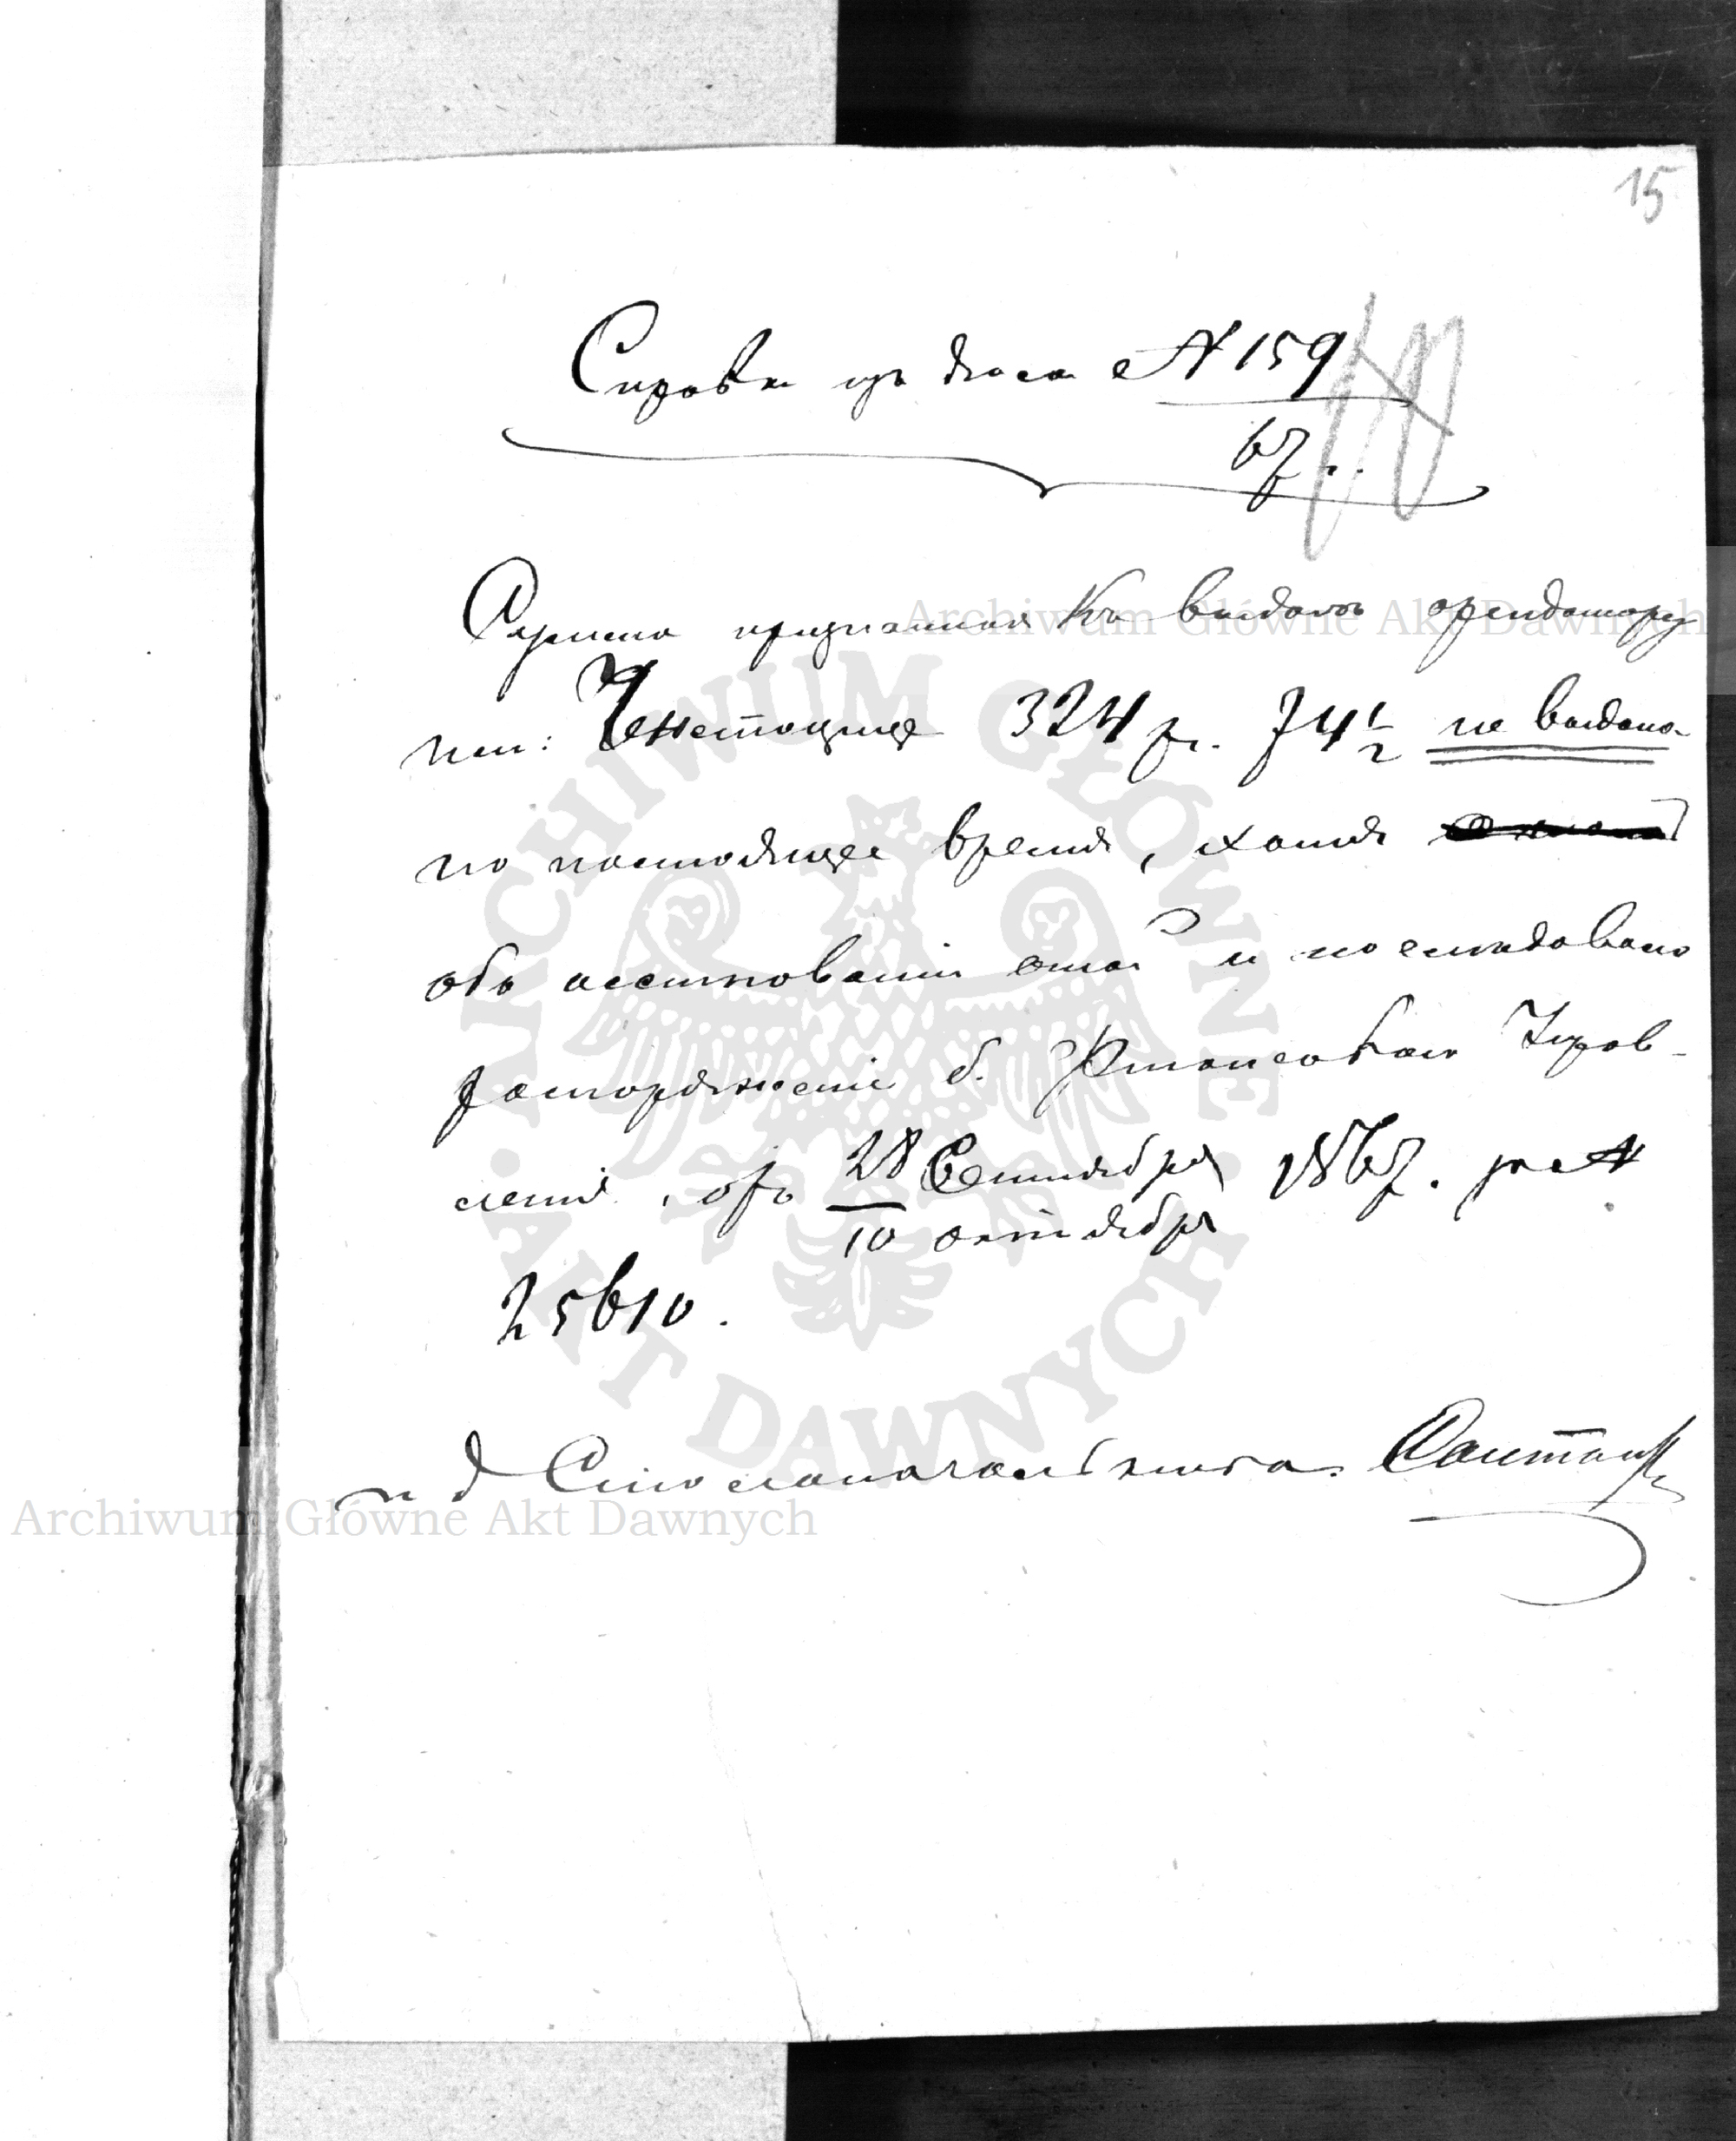 15
Справка изъ дѣла № 159
67 г.
Сумма признанная къ выдачѣ арендатору
им: 324 р. 74 1/2 не выдана
по настоящее время, хотя
объ ассигнованіи оной и послѣдовало
распоряженіе б. Финансоваго Управ-
ленія, отъ 28 Сентября 1867. за №
10 октября
25610.
и д Столоначальника
Archiwum Główne Akt Dawnych
ARCHIWUM GŁÓWNE AKT DAWNYCH
Archiwum Główne Akt Dawnych